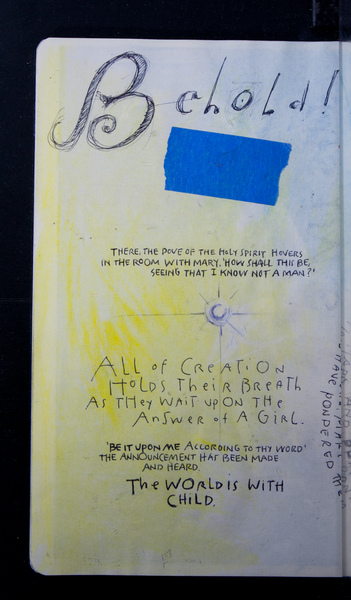 Behold!
THERE, THE DOVE OF THE HOLY SPIRIT HOVERS
IN THE ROOM WITH MARY. 'HOW SHALL THIS BE,
SEEING THAT I KNOW NOT A MAN?'
ALL of CREATION
HOLDS THEIR BREATH
AS THEY WAIT UPON THE
ANSWER of A GIRL.
'BE IT UPON ME ACCORDING TO THY WORD'
THE ANNOUNCEMENT HAS BEEN MADE
AND HEARD.
THE WORLD IS WITH
CHILD.
HAVE PONDERED